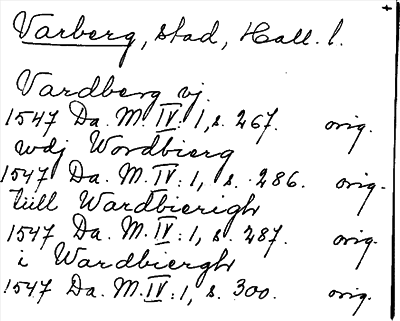 Varberg, stad, Hall. l.
Vardberg vj.
1547 Da. M. IV: 1, s. 267. orig.
wdj Wordbierg
1547 Da. M. IV: 1, s. 286. orig.
tiill Wardbierigh
1547 Da. M. IV: 1, s. 287. orig.
i Wardbiergh
1547 Da. M. IV: 1, s. 300. orig.